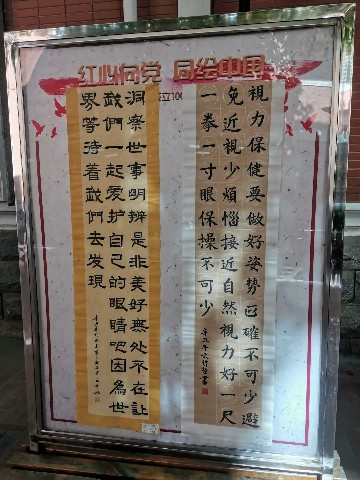 红心向党 同绘中国
視力保健要做好姿势正確不可少避
免近視少煩惱接近自然視力好一尺
一拳一寸眼保操不可少
洞察世事明辨是非美好無处不在让
我們一起爱护自己的眼睛吧因為世
界等待着我們去发現